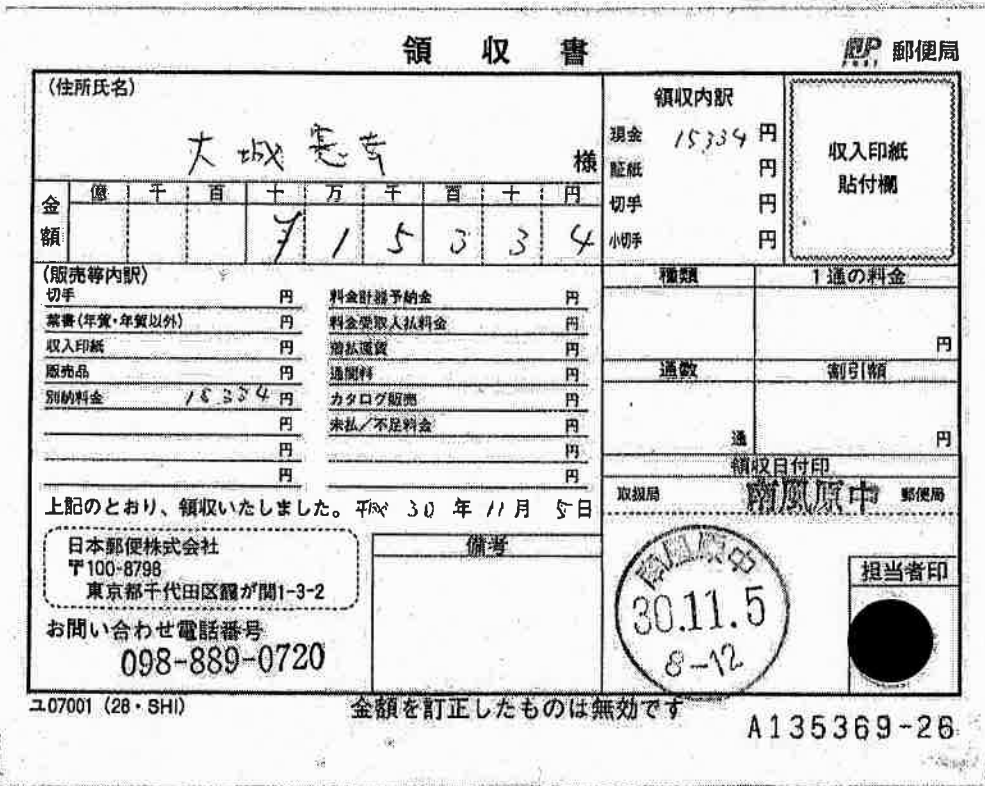 領収書
JP POST 郵便局
(住所氏名)
大城憲幸 様
金額
億 千 百 十 万 千 百 十 円
¥ 1 5 3 3 4
領収内訳
現金 15334 円
証紙 円
切手 円
小切手 円
収入印紙
貼付欄
(販売等内訳)
切手 円
葉書(年賀・年賀以外) 円
収入印紙 円
販売品 円
別納料金 15334 円
円
円
円
料金計器予納金 円
料金受取人払料金 円
着払運賃 円
通関料 円
カタログ販売 円
未払/不足料金 円
円
円
種類 1通の料金
円
通数 割引額
通 円
上記のとおり、領収いたしました。平成 30 年 11 月 5 日
領収日付印
取扱局 南風原中 郵便局
日本郵便株式会社
〒100-8798
東京都千代田区霞が関1-3-2
お問い合わせ電話番号
098-889-0720
備考
南風原中
30.11.5
8-12
担当者印
ユ07001 (28・SHI)
金額を訂正したものは無効です
A135369-26